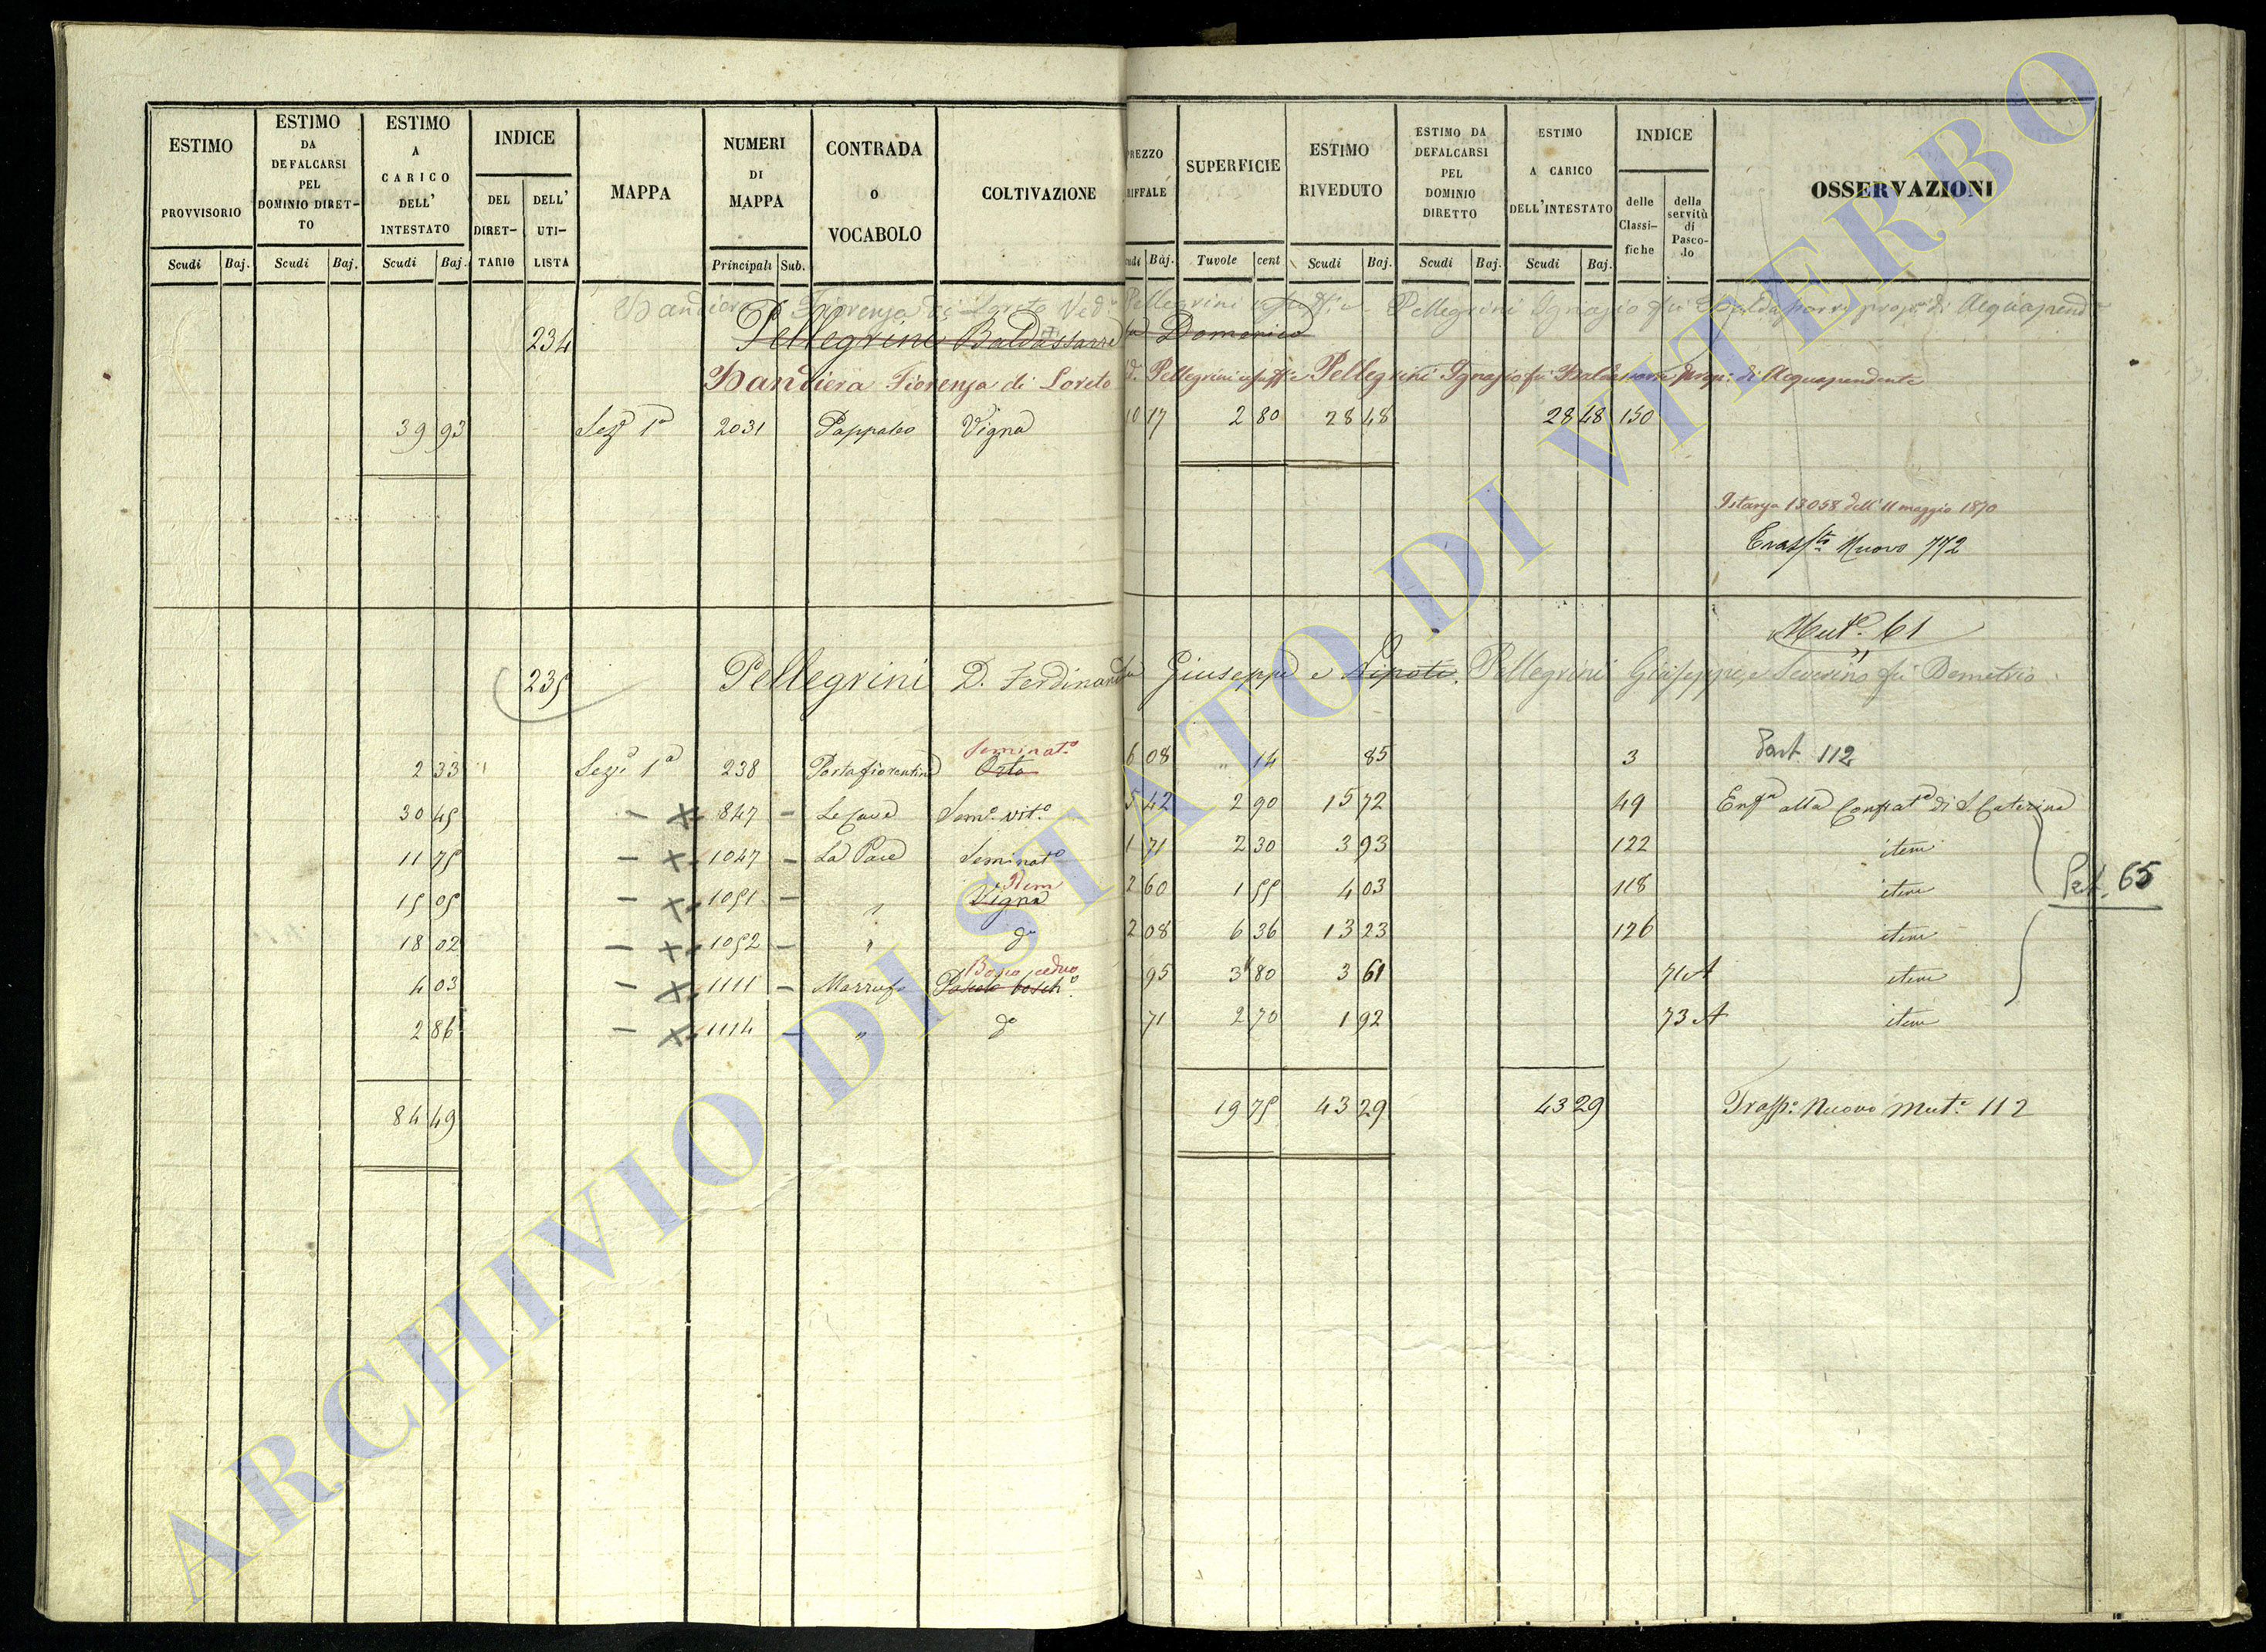 ESTIMO PROVVISORIO Scudi Baj.
ESTIMO DA DEFALCARSI PEL DOMINIO DIRET-TO Scudi Baj.
ESTIMO A CARICO DELL' INTESTATO Scudi Baj.
INDICE DEL DIRET-TARIO DELL' UTI-LISTA
MAPPA
NUMERI DI MAPPA Principali Sub.
CONTRADA o VOCABOLO
COLTIVAZIONE
REZZO RIFFALE udi Baj.
SUPERFICIE Tavole cent
ESTIMO RIVEDUTO Scudi Baj.
ESTIMO DA DEFALCARSI PEL DOMINIO DIRETTO Scudi Baj.
ESTIMO A CARICO DELL'INTESTATO Scudi Baj.
INDICE delle Classi-fiche della servitù di Pasco-lo
OSSERVAZIONI
Bandiera Fiorenza di Loreto Ved. Pellegrini Pellegrini Ignazio fu Baldassarre prop. di Acquapend
234 Pellegrini Baldassarre fu Domenico
Bandiera Fiorenza di Loreto Vd. Pellegrini usuff. e Pellegrini Ignazio fu Baldassarre prop: di Acquapendente
39 93 Sez.e 1a 2031 Pappaleo Vigna 10 17 2 80 28 48 28 48 150
Istanza 13058 dell' 11 maggio 1870
Trasp.to Nuovo 772
Mut.e 61
235 Pellegrini D. Ferdinando Giuseppe e Nipoti. Pellegrini Giuseppe, e Severino fu Demetrio
Seminat.o
2 33 Sez.e 1a 238 Porta fiorentina Orto 6 08 " 14 85 3 Part 112
30 45 – x 847 – Le Cave Sem.o vit.o 5 42 2 90 15 72 49 Enf.a alla Confrat.a di S. Caterina
11 75 – x 1047 – La Pace Seminato 1 71 2 30 3 93 122 item
Idem
15 05 – x 1051 – " Vigna 2 60 1 55 4 03 118 item
Part. 65
18 02 – x 1052 – " do 2 08 6 36 13 23 126 item
Bosco ceduo
4 03 – x 1111 – Marruf Pascolo bosch.o 95 3 80 3 61 71 A item
2 86 – x 1114 – " do 71 2 70 1 92 73 A item
84 49 19 75 43 29 43 29 Trasp.o Nuovo Mut.e 112
ARCHIVIO DI STATO DI VITERBO